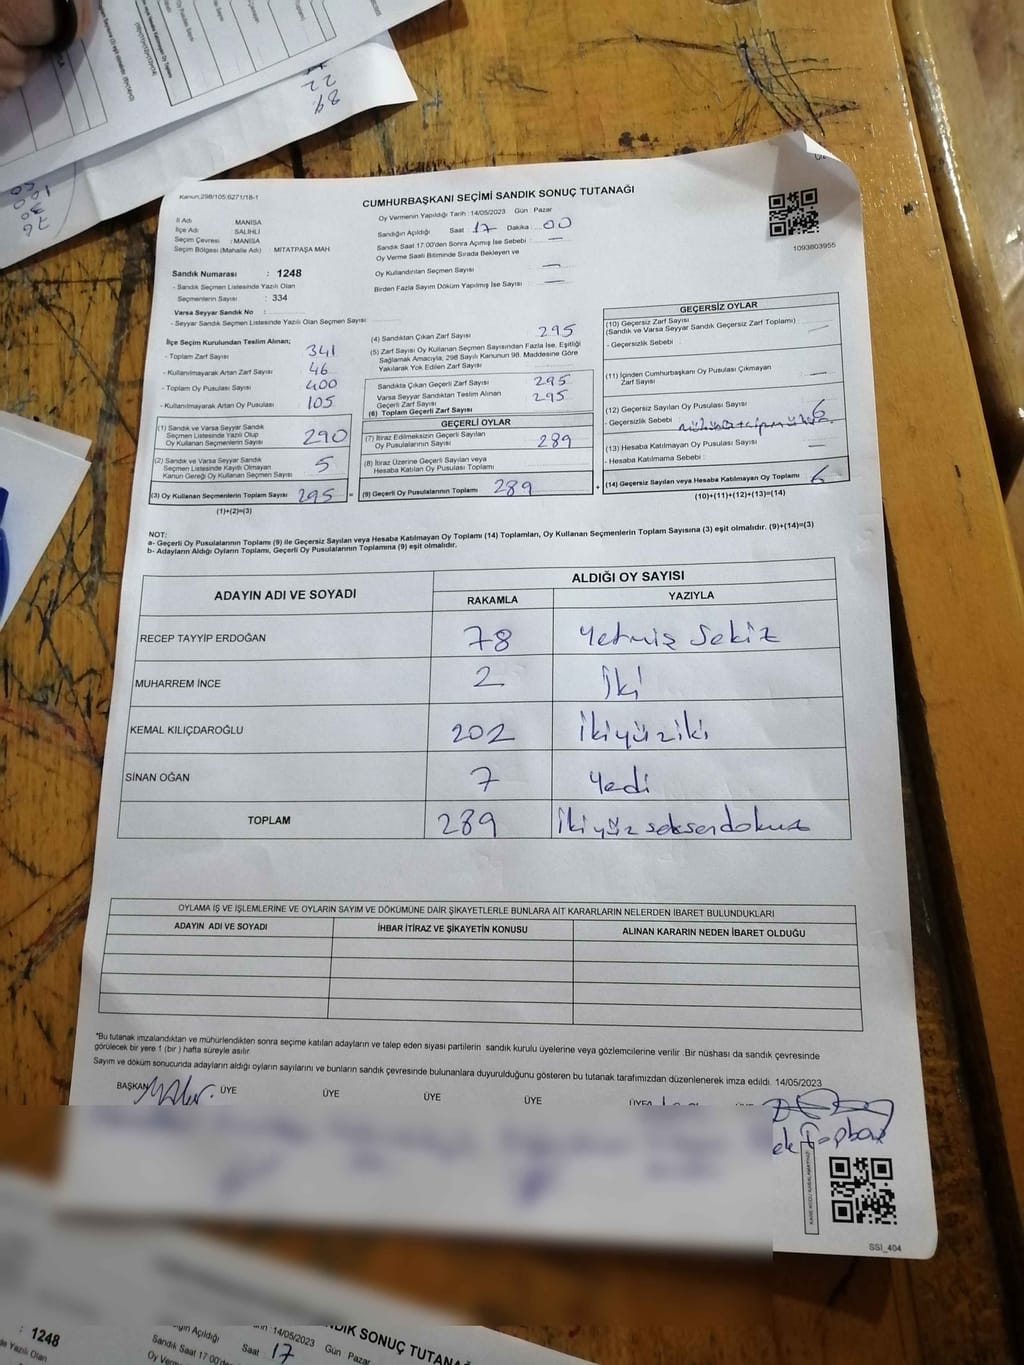 Kanun;298/105;6271/18-1
CUMHURBAŞKANI SEÇİMİ SANDIK SONUÇ TUTANAĞI
Oy Vermenin Yapıldığı Tarih : 14/05/2023 Gün : Pazar
İl Adı MANİSA
İlçe Adı SALİHLİ
Seçim Çevresi : MANİSA
Seçim Bölgesi (Mahalle Adı) MİTATPAŞA MAH.
Sandığın Açıldığı Saat 17 Dakika : 00
Sandık Saat 17:00'den Sonra Açımış İse Sebebi : —
Oy Verme Saati Bitiminde Sırada Bekleyen ve
Oy Kullandırılan Seçmen Sayısı —
Birden Fazla Sayım Döküm Yapılmış İse Sayısı : —
1093803955
Sandık Numarası : 1248
- Sandık Seçmen Listesinde Yazılı Olan
Seçmenlerin Sayısı : 334
Varsa Seyyar Sandık No :
- Seyyar Sandık Seçmen Listesinde Yazılı Olan Seçmen Sayısı
İlçe Seçim Kurulundan Teslim Alınan;
- Toplam Zarf Sayısı 341
- Kullanılmayarak Artan Zarf Sayısı 46
- Toplam Oy Pusulası Sayısı 400
- Kullanılmayarak Artan Oy Pusulası 105
(1) Sandık ve Varsa Seyyar Sandık
Seçmen Listesinde Yazılı Olup
Oy Kullanan Seçmenlerin Sayısı 290
(2) Sandık ve Varsa Seyyar Sandık
Seçmen Listesinde Kayıtlı Olmayan
Kanun Gereği Oy Kullanan Seçmen Sayısı 5
(3) Oy Kullanan Seçmenlerin Toplam Sayısı 295 =
(1)+(2)=(3)
(4) Sandıktan Çıkan Zarf Sayısı 295
(5) Zarf Sayısı Oy Kullanan Seçmen Sayısından Fazla İse, Eşitliği
Sağlamak Amacıyla, 298 Sayılı Kanunun 98. Maddesine Göre
Yakılarak Yok Edilen Zarf Sayısı
Sandıkta Çıkan Geçerli Zarf Sayısı 295
Varsa Seyyar Sandıktan Teslim Alınan
Geçerli Zarf Sayısı 295
(6) Toplam Geçerli Zarf Sayısı
GEÇERLİ OYLAR
(7) İtiraz Edilmeksizin Geçerli Sayılan
Oy Pusulalarının Sayısı 289
(8) İtiraz Üzerine Geçerli Sayılan veya
Hesaba Katılan Oy Pusulası Toplamı
(9) Geçerli Oy Pusulalarının Toplamı 289 +
GEÇERSİZ OYLAR
(10) Geçersiz Zarf Sayısı
(Sandık ve Varsa Seyyar Sandık Geçersiz Zarf Toplamı) : —
- Geçersizlik Sebebi :
(11) İçinden Cumhurbaşkanı Oy Pusulası Çıkmayan
Zarf Sayısı —
(12) Geçersiz Sayılan Oy Pusulası Sayısı 6
- Geçersizlik Sebebi
(13) Hesaba Katılmayan Oy Pusulası Sayısı —
- Hesaba Katılmama Sebebi :
(14) Geçersiz Sayılan veya Hesaba Katılmayan Oy Toplamı 6
(10)+(11)+(12)+(13)=(14)
NOT:
a- Geçerli Oy Pusulalarının Toplamı (9) ile Geçersiz Sayılan veya Hesaba Katılmayan Oy Toplamı (14) Toplamları, Oy Kullanan Seçmenlerin Toplam Sayısına (3) eşit olmalıdır. (9)+(14)=(3)
b- Adayların Aldığı Oyların Toplamı, Geçerli Oy Pusulalarının Toplamına (9) eşit olmalıdır.
ADAYIN ADI VE SOYADI ALDIĞI OY SAYISI
RAKAMLA YAZIYLA
RECEP TAYYİP ERDOĞAN 78 Yetmiş Sekiz
MUHARREM İNCE 2 İki
KEMAL KILIÇDAROĞLU 202 İkiyüziki
SİNAN OĞAN 7 Yedi
TOPLAM 289 İkiyüz seksendokuz
OYLAMA İŞ VE İŞLEMLERİNE VE OYLARIN SAYIM VE DÖKÜMÜNE DAİR ŞİKAYETLERLE BUNLARA AİT KARARLARIN NELERDEN İBARET BULUNDUKLARI
ADAYIN ADI VE SOYADI İHBAR İTİRAZ VE ŞİKAYETİN KONUSU ALINAN KARARIN NEDEN İBARET OLDUĞU
*Bu tutanak imzalandıktan ve mühürlendikten sonra seçime katılan adayların ve talep eden siyasi partilerin sandık kurulu üyelerine veya gözlemcilerine verilir. Bir nüshası da sandık çevresinde
görülecek bir yere 1 (bir) hafta süreyle asılır.
Sayım ve döküm sonucunda adayların aldığı oyların sayılarını ve bunların sandık çevresinde bulunanlara duyurulduğunu gösteren bu tutanak tarafımızdan düzenlenerek imza edildi. 14/05/2023
BAŞKAN ÜYE ÜYE ÜYE ÜYE ÜYE
SSİ_404
: 1248
14/05/2023 Gün Pazar
Saat 17